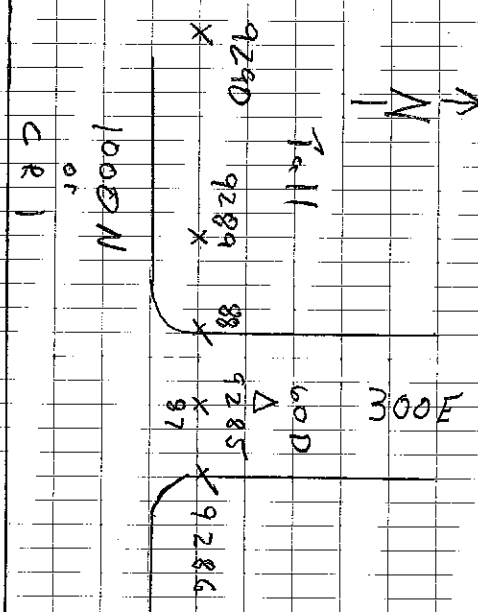 N
Tall
9290
9289
88
300E
60D
9285
87
9286
1000N
or
CR 1